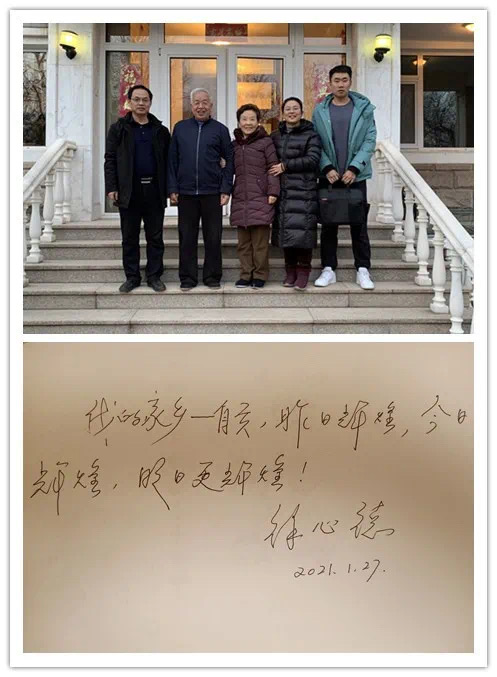 我的家乡一自贡，昨日辉煌，今日
辉煌，明日更辉煌！
徐心德
2021.1.27.